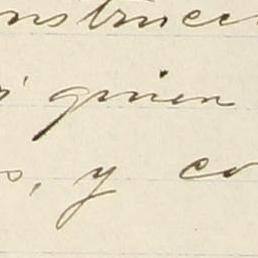 nstrucci
r quien
s, y co